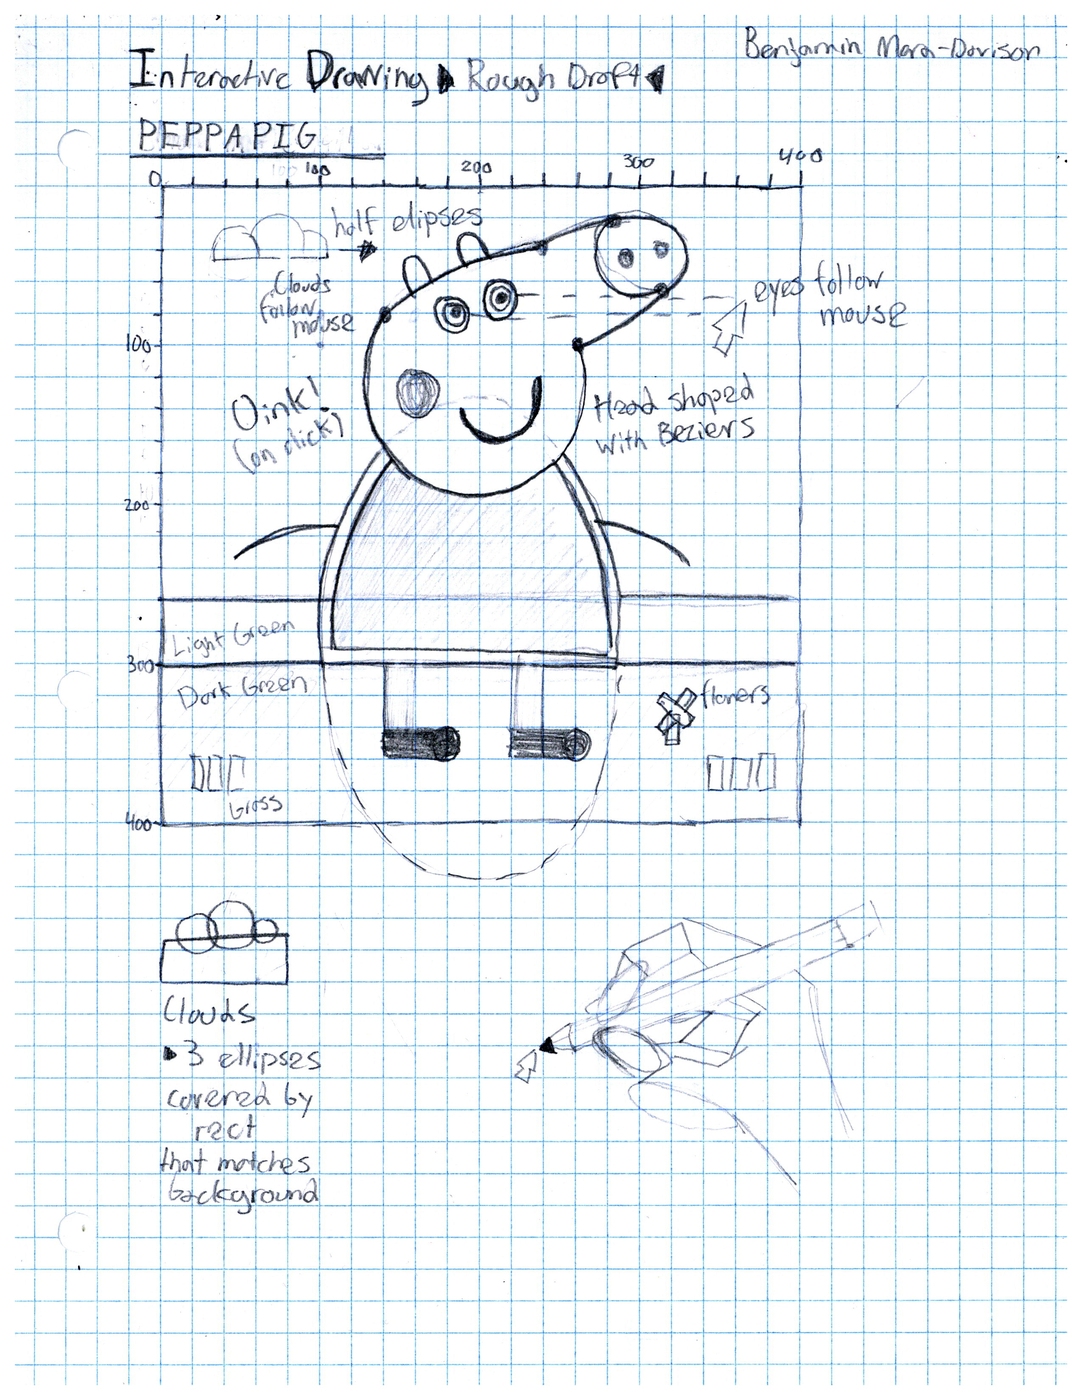 Benjamin Mara-Davison
Interactive Drawing Rough Draft
PEPPA PIG
0 100 200 300 400
half elipses
Clouds
follow
mouse
eyes follow
mouse
100
Oink!
(on click)
Head shaped
with Beziers
200
Light Green
300
Dark Green
flowers
Grass
400
Clouds
3 ellipses
covered by
rect
that matches
background